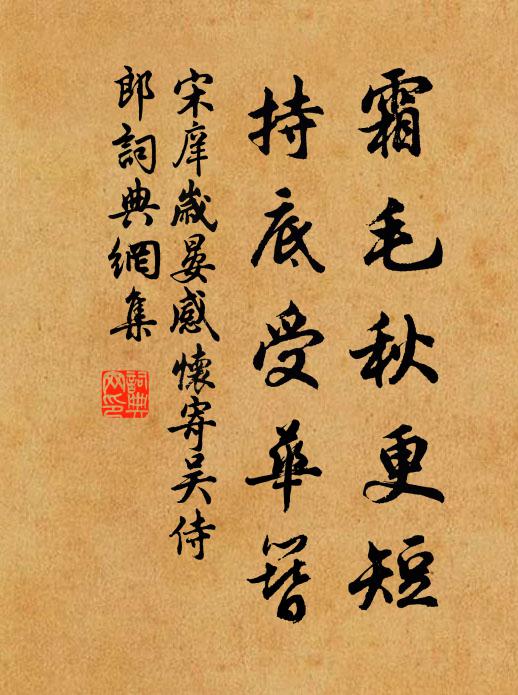 霜毛秋更短
持底受華簪
宋庠歲晏感懷寄吳侍
郎詞典網集
詞典
网印